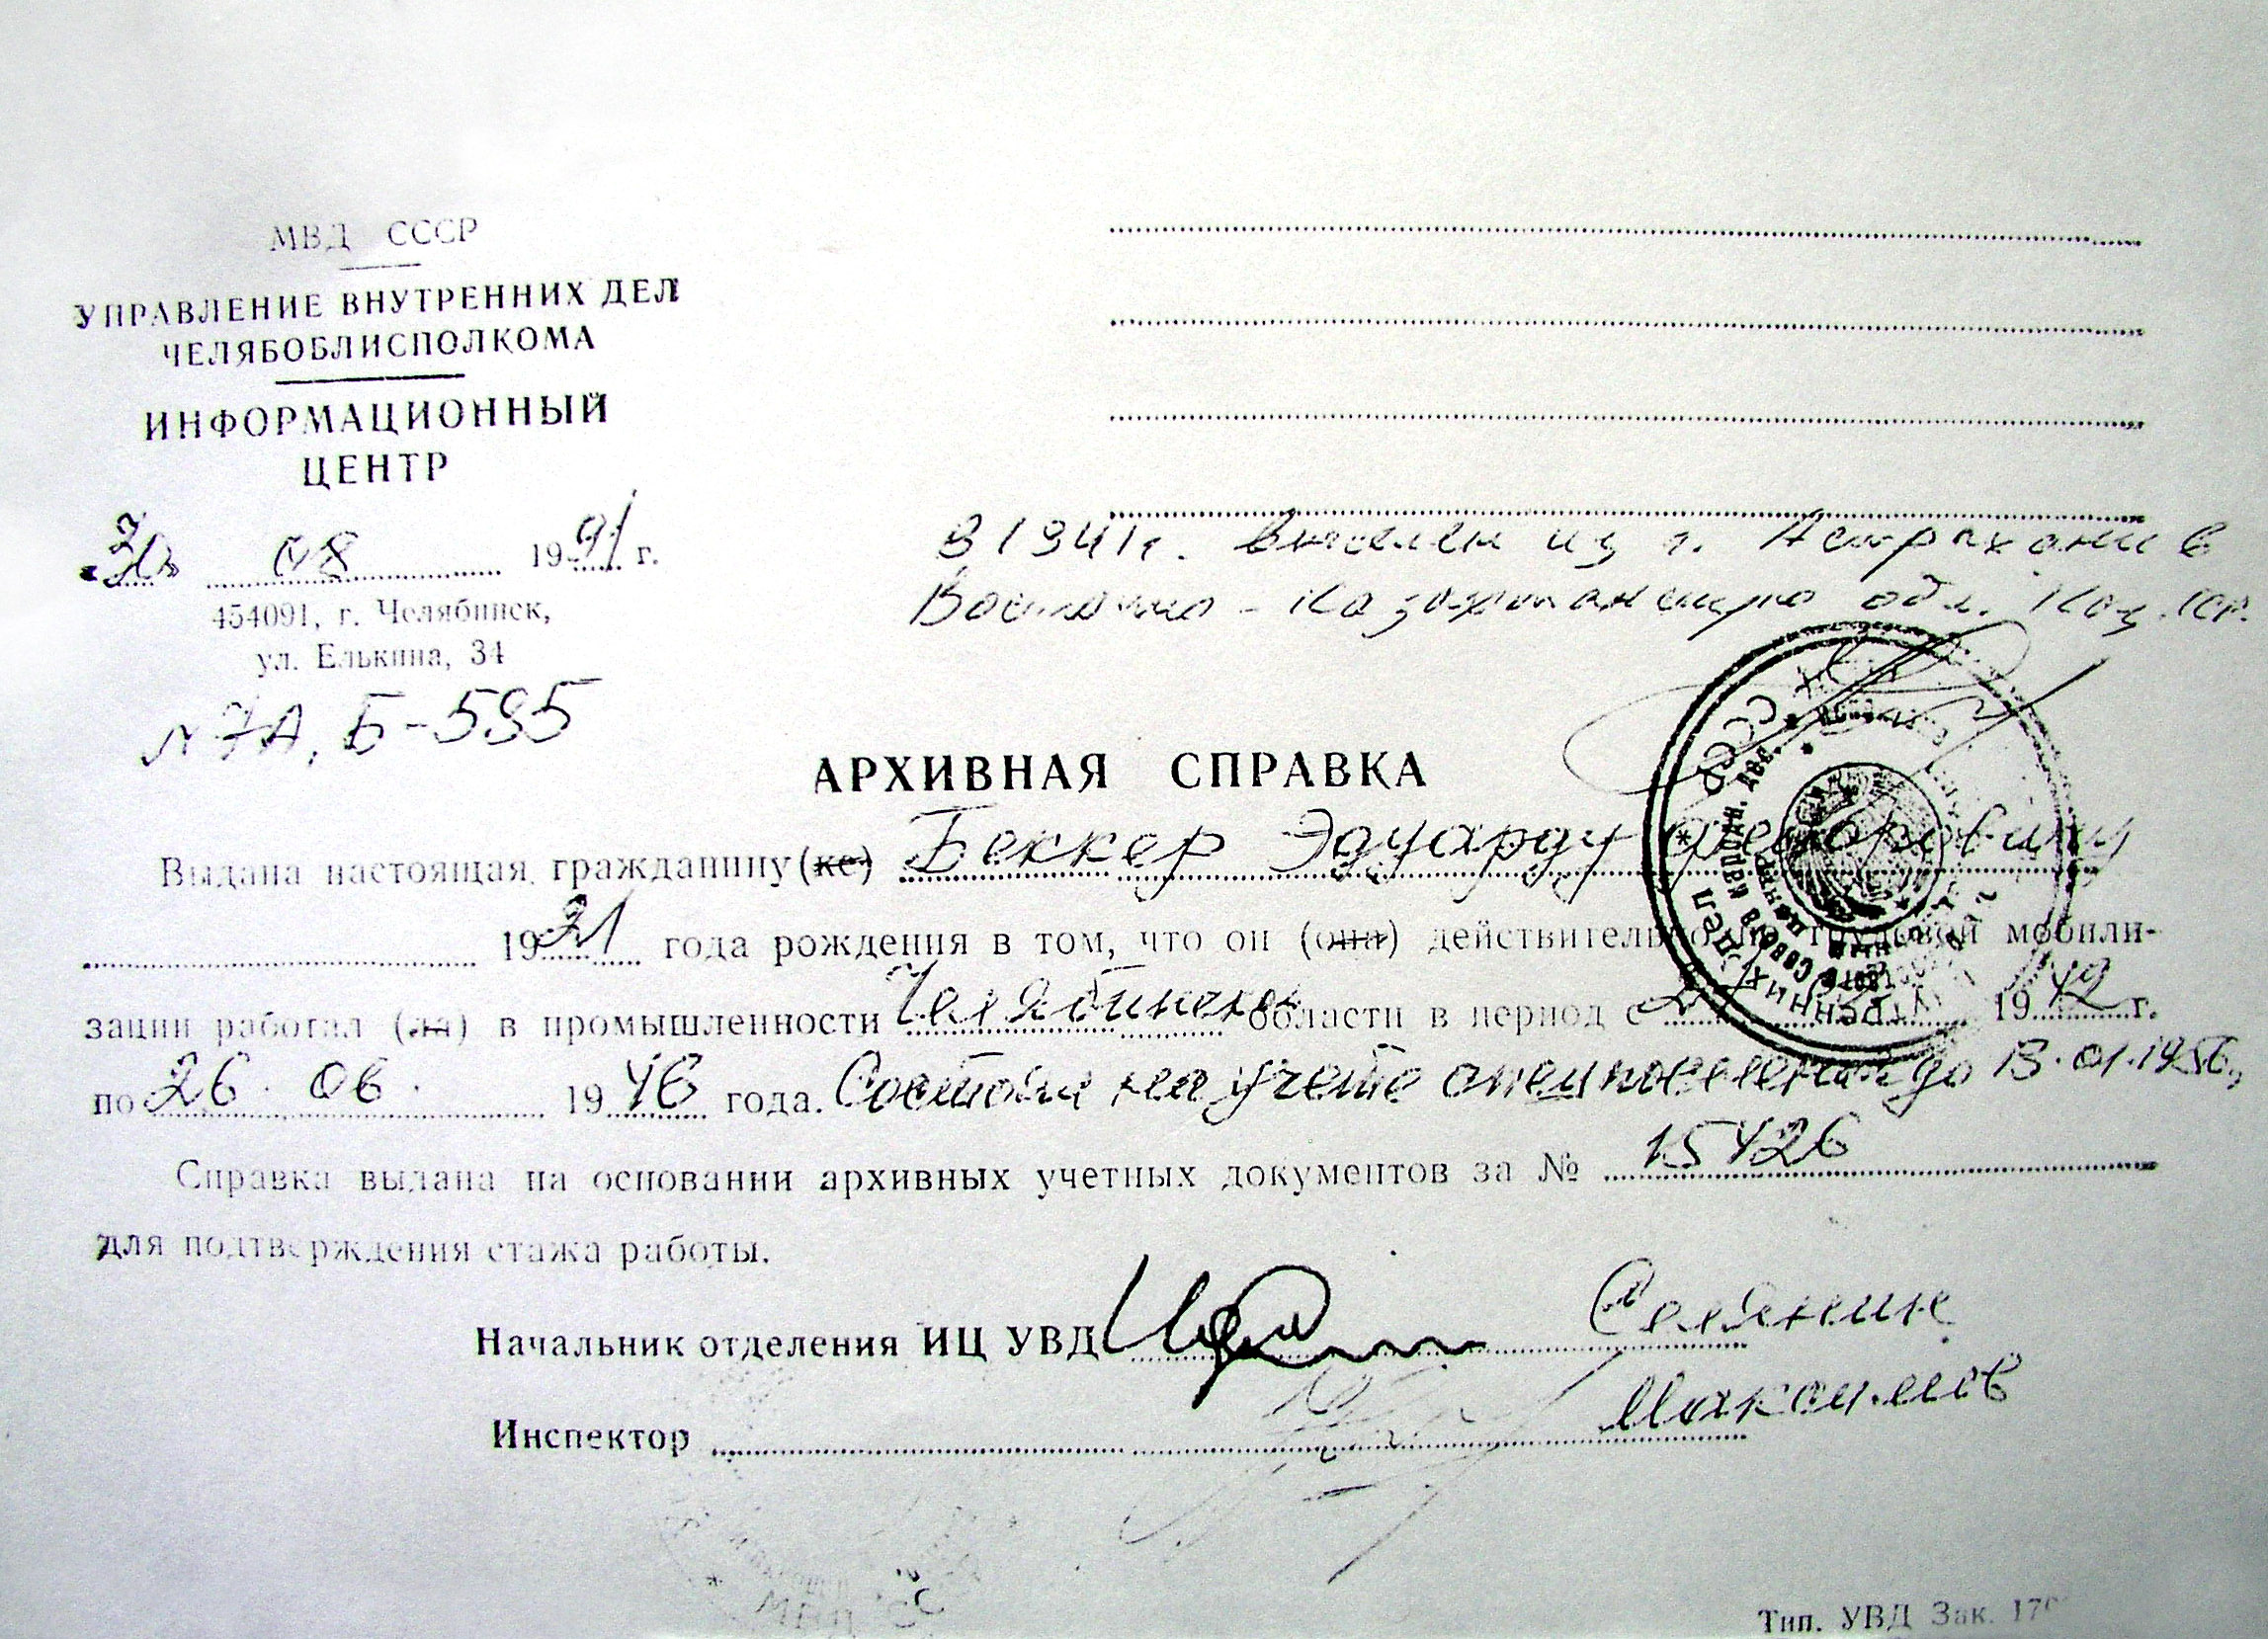 МВД СССР
УПРАВЛЕНИЕ ВНУТРЕННИХ ДЕЛ
ЧЕЛЯБОБЛИСПОЛКОМА
ИНФОРМАЦИОННЫЙ
ЦЕНТР
«30» 08 1991 г.
454091, г. Челябинск,
ул. Елькина, 34
№ 7А, Б-595
В 1941г. выселен из г. Астрахани в
Восточно-Казахстанскую обл. Каз. ССР.
АРХИВНАЯ СПРАВКА
Выдана настоящая гражданину (ке) Беккер Эдуарду Федоровичу
1921 года рождения в том, что он (она) действительно по трудовой мобили-
зации работал (ла) в промышленности Челябинской области в период с 1942 г.
по 26. 06. 1946 года. Состоял на учете спецпоселения до 13.01.1956,
Справка выдана на основании архивных учетных документов за № 15426
для подтверждения стажа работы.
Начальник отделения ИЦ УВД Селянин
Инспектор Максимов
Тип. УВД Зак.